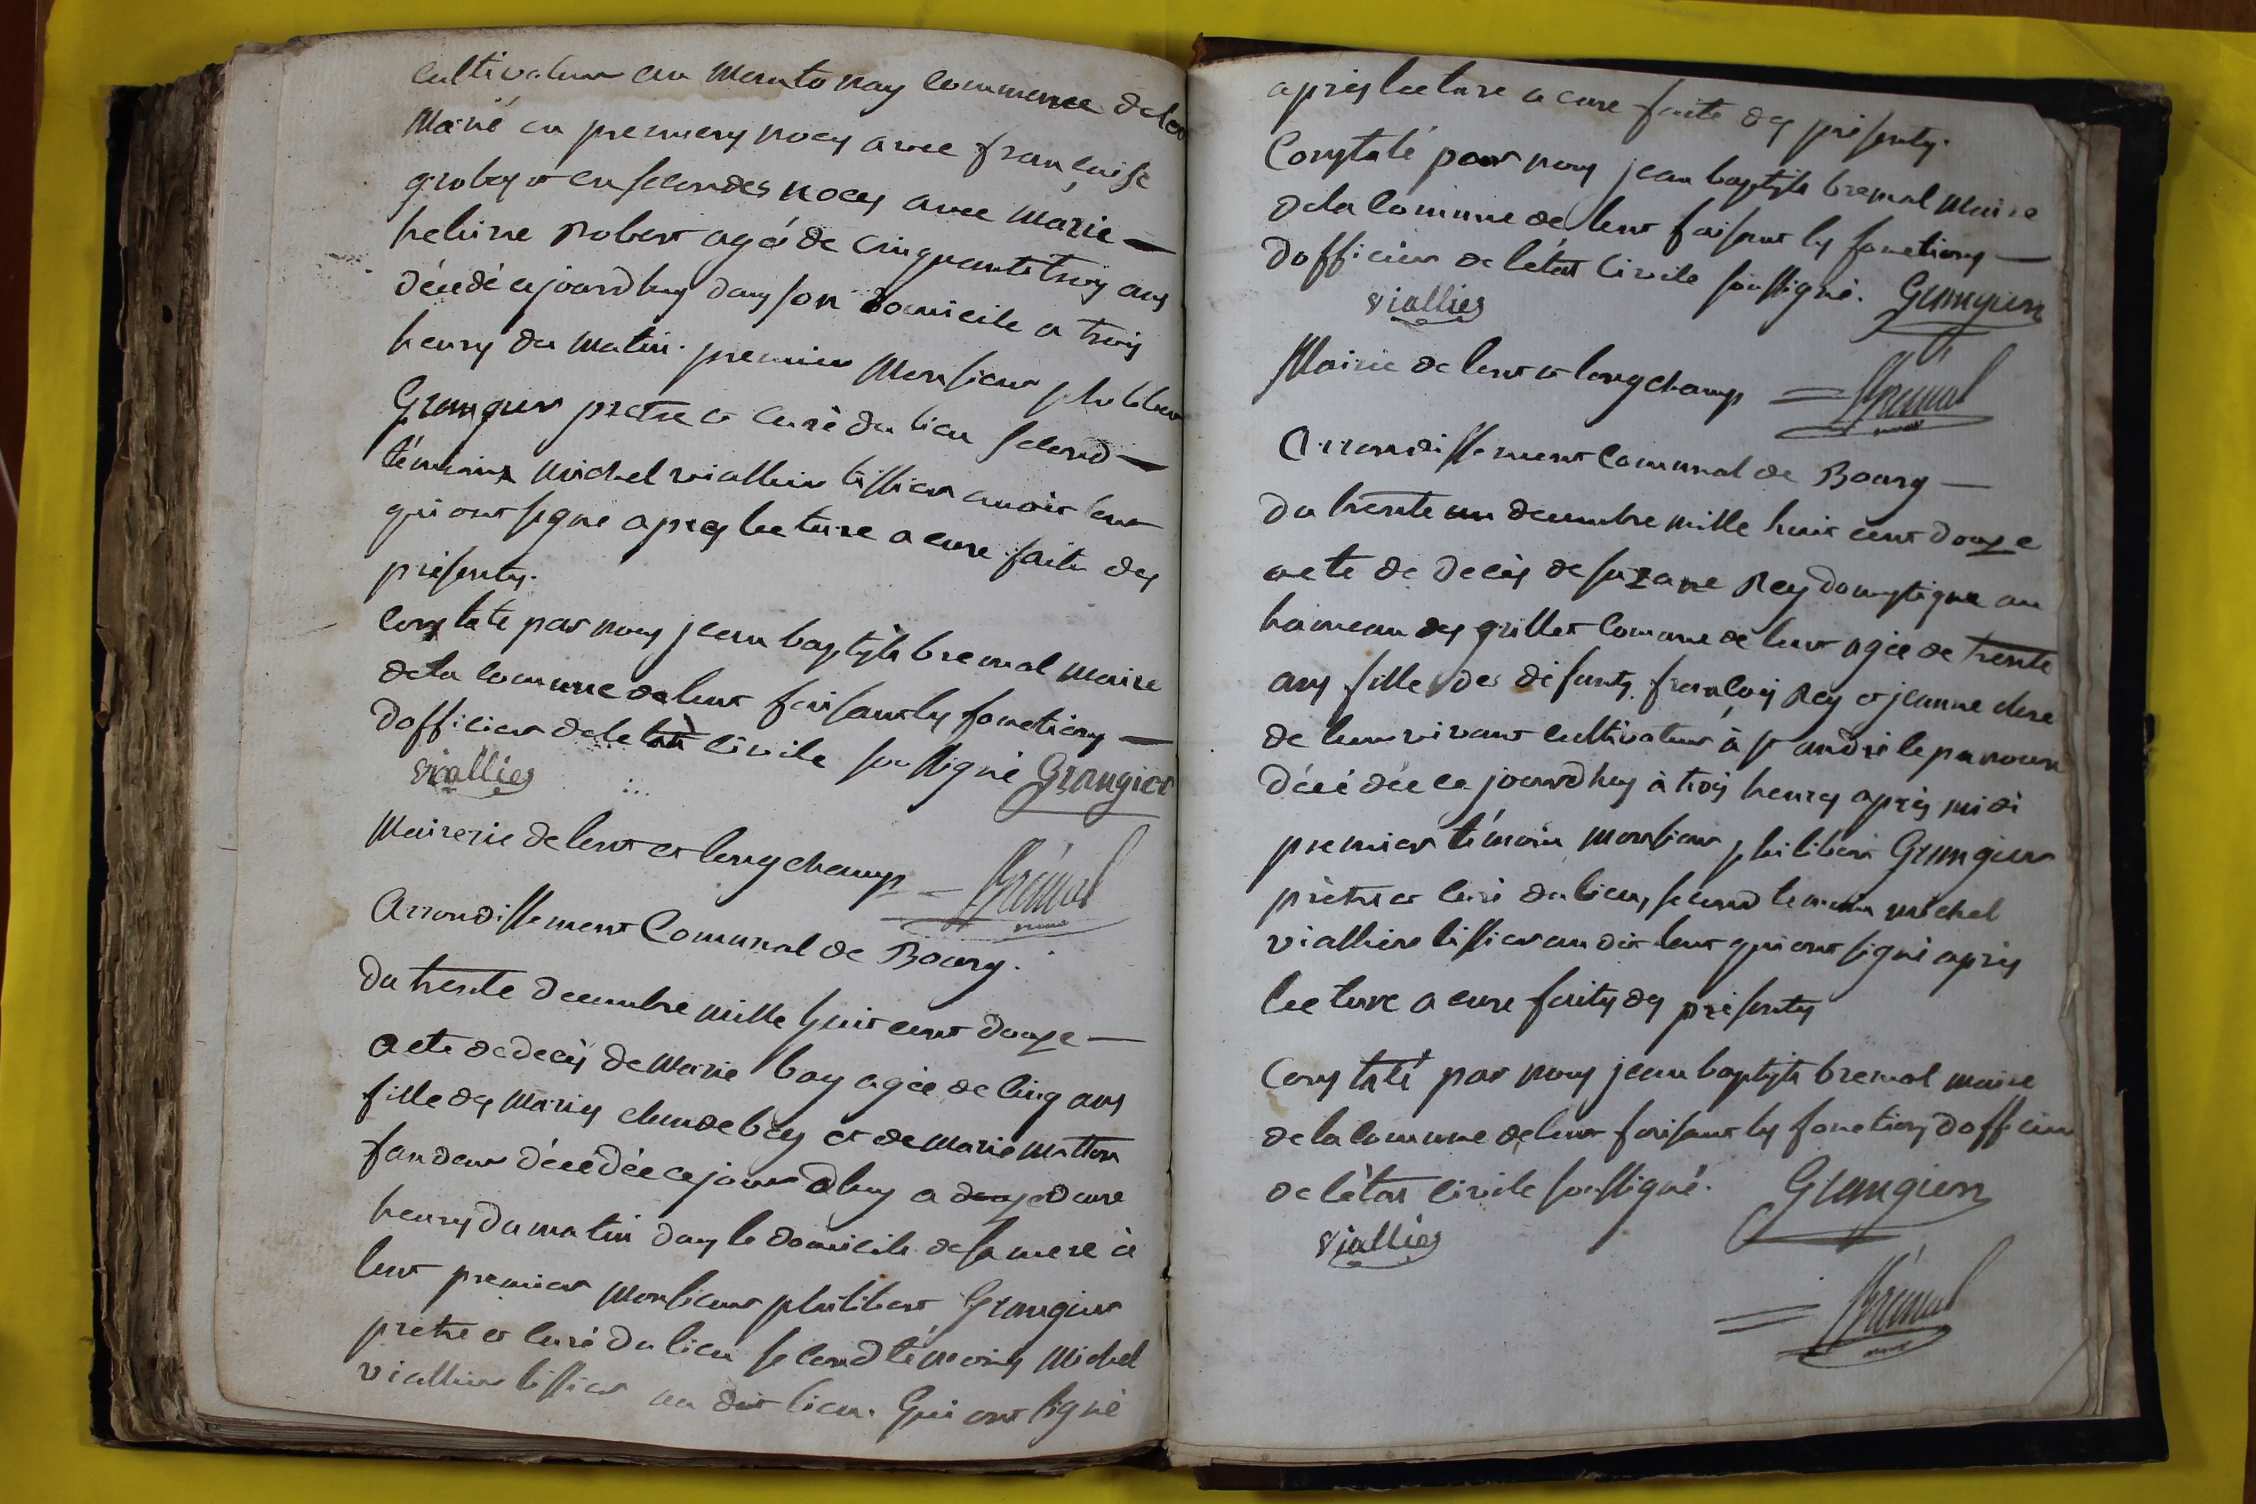 cultivateur au Montonay commune de
Marié en premiers noces avec françoise
groboz et en secondes noces avec Marie
heleine Robert agé de cinquante trois ans
décédé cejourdhuy dans son domicile a trois
heures du Matin. premier Monsieur philibert
Grangier pretre et curé du lieu second
témoins Michel viallier tissier audit lent
qui ont signe apres lecture a eux faite des
présentes.
constaté par nous jean baptiste bremal maire
de la commune de lent faisant les fonctions
dofficier de letat civile soussigné Grangier
viallier
Mairerie de lent et longchamp Brémal
Arrondissement Comunal de Bourg.
du trente decembre mille huit cent douze
acte de decès de Marie bay agée de cinq ans
fille des Mariés claude bay et de Marie Matton
décédée cejourdhuy a deux
heures du matin dans le domicile de sa mere à
lent premier Monsieur philibert Grangier
pretre et curé du lieu second témoins Michel
viallier tissier au dit lieu. Qui ont signé
apres lecture a eux faite des présentes.
Constaté par nous jean baptiste bremal Maire
de la Comune de lent faisant les fonctions
dofficier de létat civile soussigné. Grangier
viallier
Mairie de lent et longchamp Brémal
Arrondissement Comunal de Bourg
du trente un decembre mille huit cent douze
acte de decès de suzane Rey domestique au
hameau des grillet Comune de lent agée de trente
ans fille des défunts françois Rey et jeanne
de leur vivant cultivateur à st andré le panoux
décédée ce jourdhuy à trois heures après midi
premier témoin Monsieur philibert Grangier
prètre et curé du lieu, second temoin michel
viallier tissier au dit lent qui ont signé après
lecture a eux faites des présentes
Constaté par nous jean baptiste bremal maire
de la comune de lent faisant les fonctions dofficier
de létat civile soussigné. Grangier
viallier
Brémal